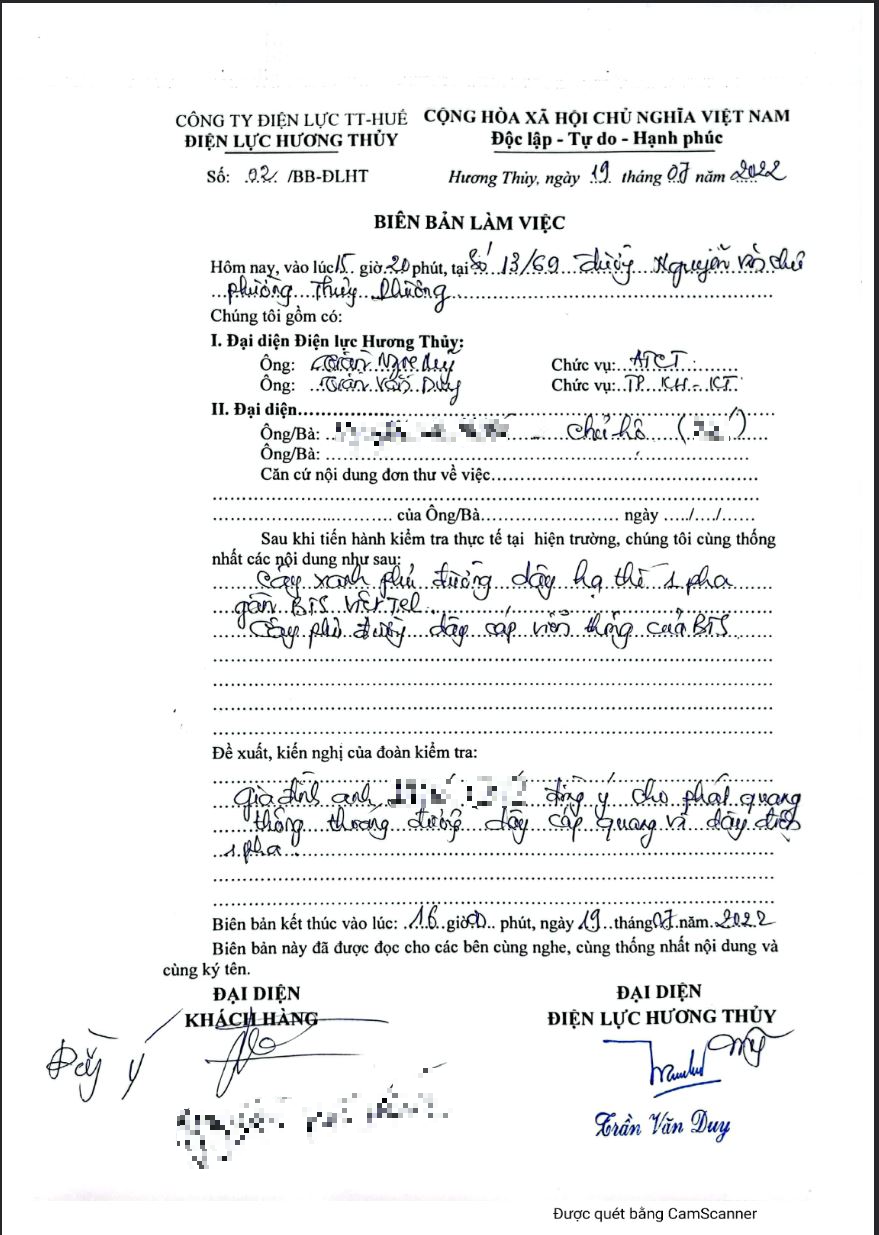 CÔNG TY ĐIỆN LỰC TT-HUẾ
ĐIỆN LỰC HƯƠNG THỦY
CỘNG HÒA XÃ HỘI CHỦ NGHĨA VIỆT NAM
Độc lập - Tự do - Hạnh phúc
Số: 02 /BB-ĐLHT
Hương Thủy, ngày 19 tháng 07 năm 2022
BIÊN BẢN LÀM VIỆC
Hôm nay, vào lúc 15 giờ 20 phút, tại Số 13/69 đường Nguyễn Văn Chư
phường Thủy Phương
Chúng tôi gồm có:
I. Đại diện Điện lực Hương Thủy:
Ông: Trần Ngọc Chức vụ: ATCT
Ông: Trần Văn Duy Chức vụ: TP. KH-KT
II. Đại diện
Ông/Bà: chủ hộ
Ông/Bà:
Căn cứ nội dung đơn thư về việc
của Ông/Bà ngày ...../..../......
Sau khi tiến hành kiểm tra thực tế tại hiện trường, chúng tôi cùng thống
nhất các nội dung như sau:
Cây xanh phủ đường dây hạ thế 1 pha
gần BTS VietTel
Cây phủ đường dây cáp viễn thông của BTS
Đề xuất, kiến nghị của đoàn kiểm tra:
Gia đình anh đồng ý cho phát quang
thông thoáng đường dây cáp quang và dây điện
1 pha
Biên bản kết thúc vào lúc: 16 giờ 00 phút, ngày 19 tháng 07 năm 2022
Biên bản này đã được đọc cho các bên cùng nghe, cùng thống nhất nội dung và
cùng ký tên.
ĐẠI DIỆN
KHÁCH HÀNG
ĐẠI DIỆN
ĐIỆN LỰC HƯƠNG THỦY
Đồng ý
Trần Văn Duy
Được quét bằng CamScanner